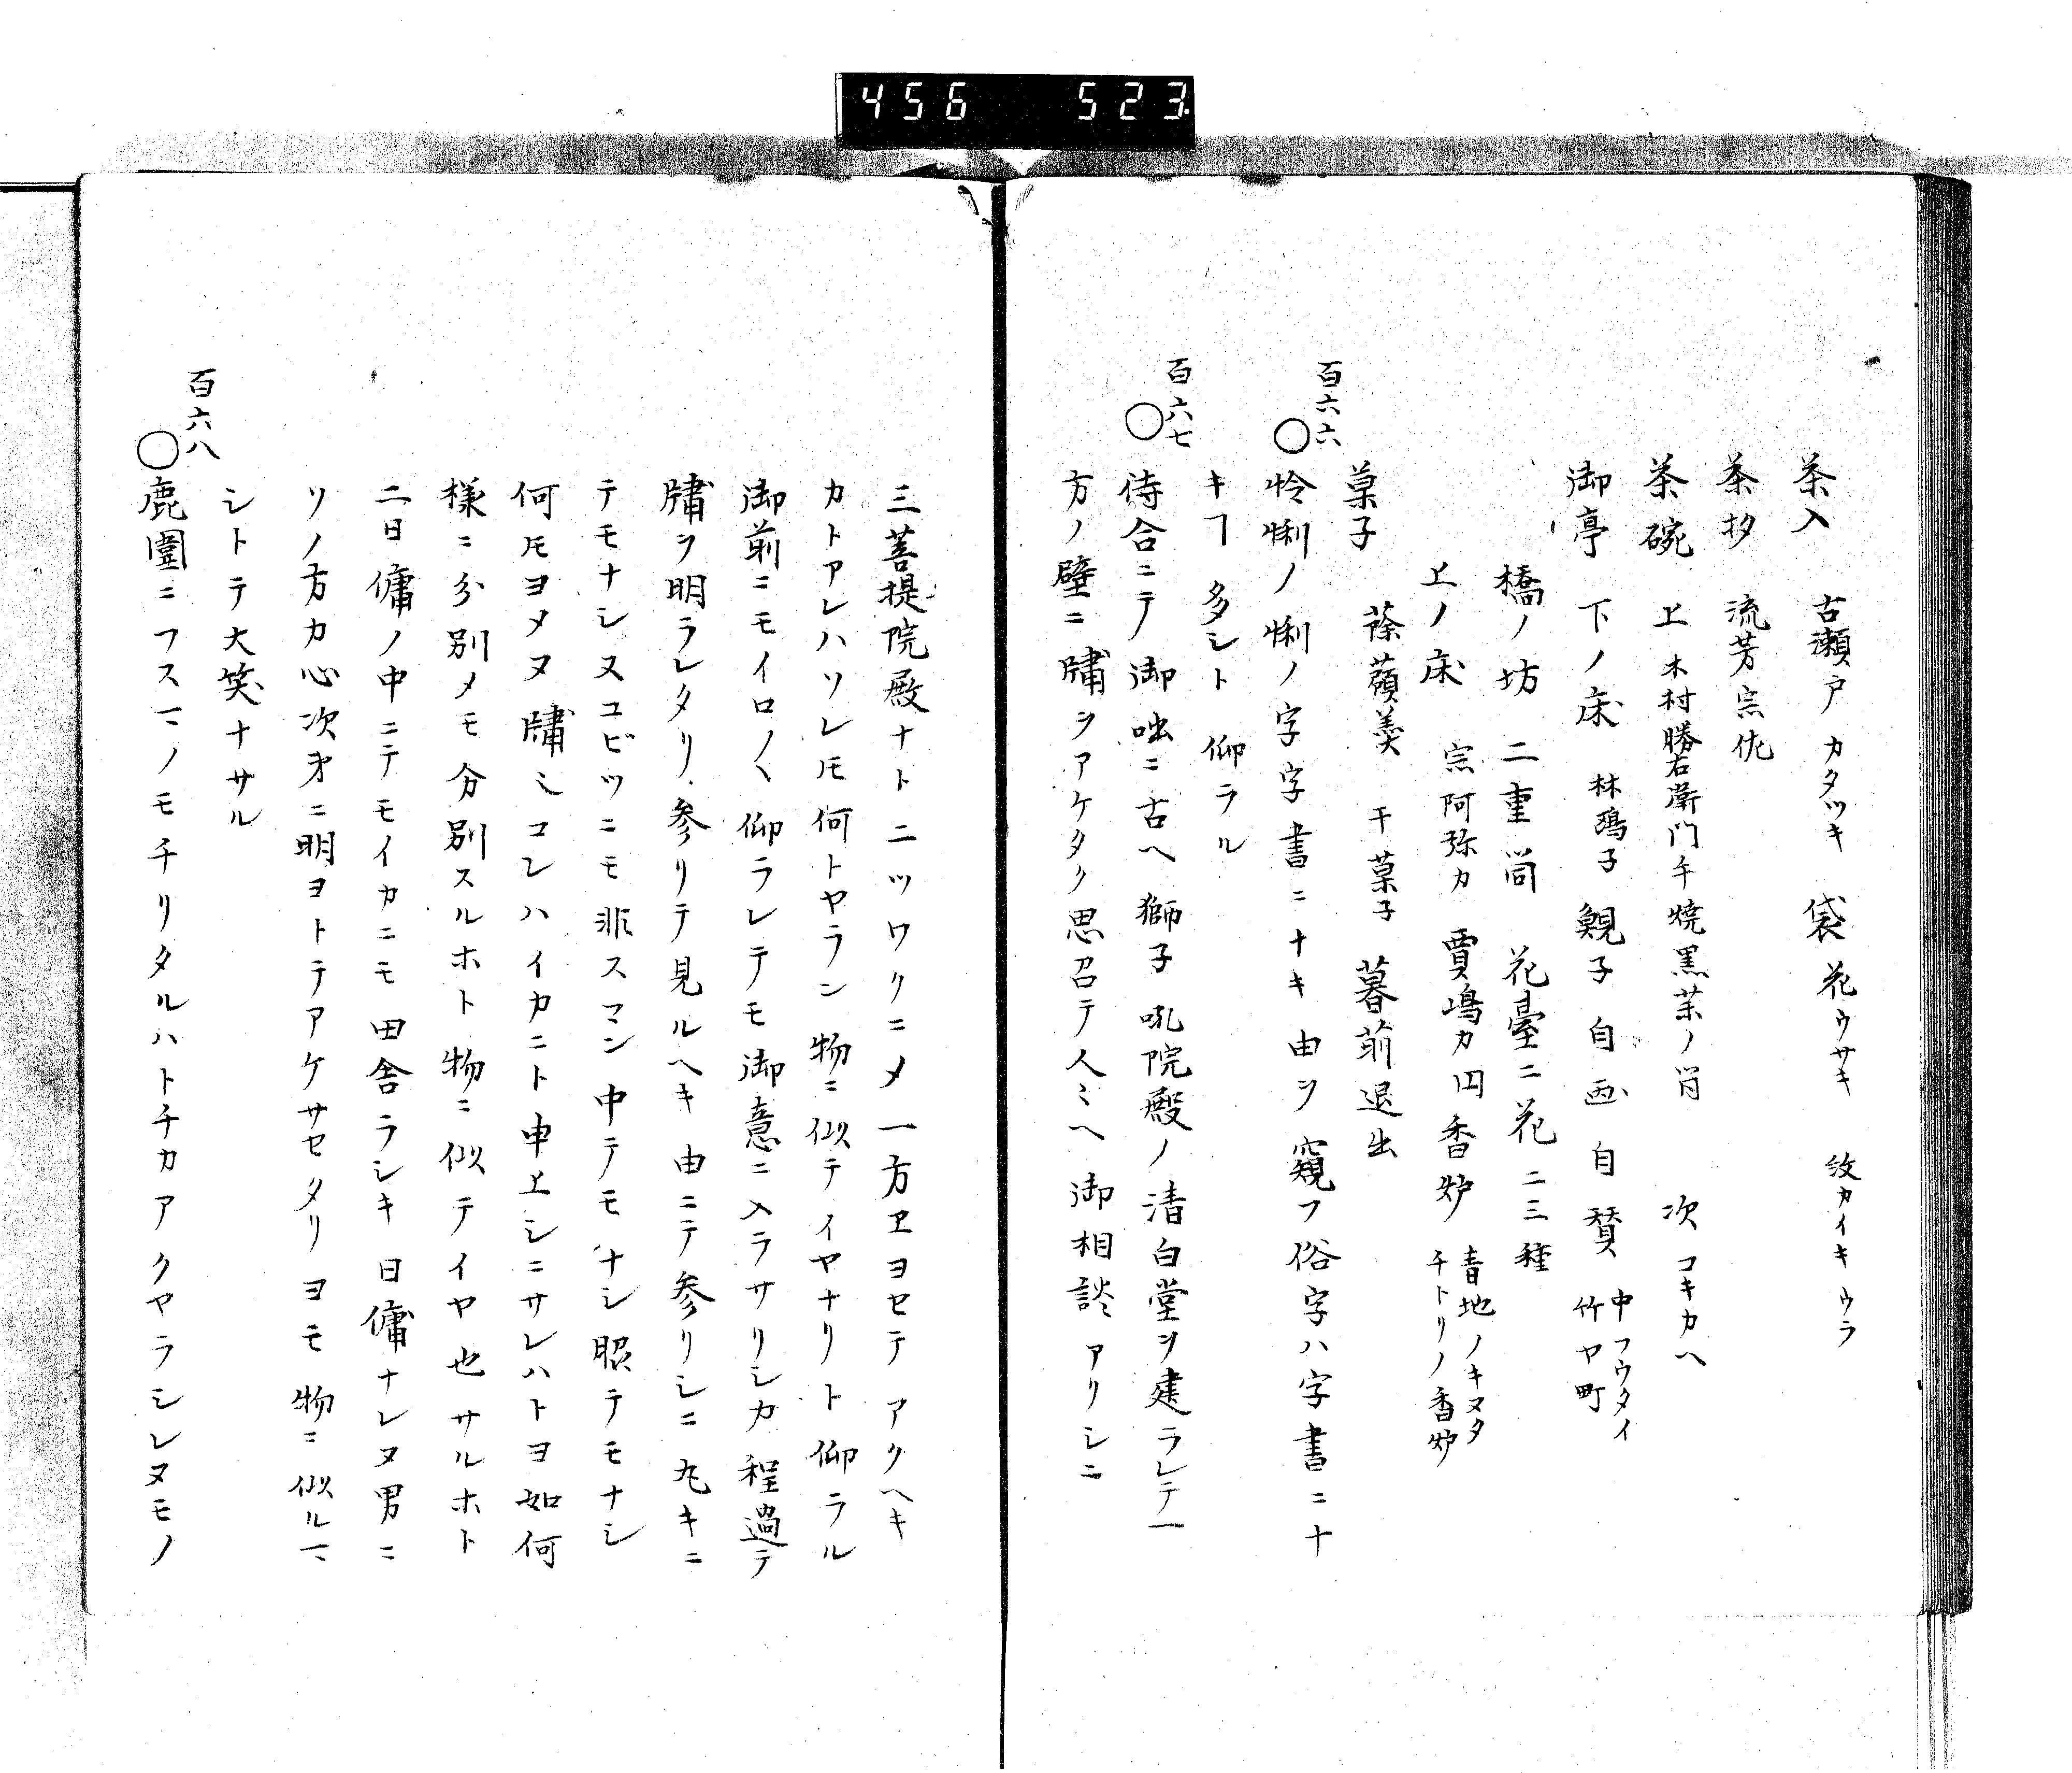 456 523
茶入 古瀬戸 カタツキ 袋 花ウサキ 紋カイキ ウラ
茶杪 流芳宗佐
茶碗 上 木村勝右衛門手焼黒茶ノ筒 次 コキカヘ
御亭 下ノ床 林鵐子 鶃子 自画 自賛 中フウタイ 竹ヤ町
橋ノ坊 二重筒 花臺ニ花 二三種
上ノ床 宗阿弥カ 賈嶋カ円香炉 青地ノキヌタ チトリノ香炉
菓子 蓧蘋羹 干菓子 暮前退出
百六六
○怜悧ノ悧ノ字字書ニナキ由ヲ窺フ俗字ハ字書ニナ
キヿ多シト仰ラル
百六七
○待合ニテ御咄ニ古ヘ獅子吼院殿ノ清白堂ヲ建ラレテ一
方ノ壁ニ牗ヲアケタク思召テ人ミヘ御相談アリシニ
三菩提院殿ナトニツワクニメ一方ヱヨセテアクヘキ
カトアレハソレモ何トヤラン物ニ似テイヤナリト仰ラル
御前ニモイロ〱仰ラレテモ御意ニ入ラサリシカ程過テ
牗ヲ明ラレタリ参リテ見ルヘキ由ニテ参リシニ丸キニ
テモナシヌユビツニモ非スマン中テモナシ眤テモナシ
何ヒヨメヌ牗ミコレハイカニト申上シニサレハトヨ如何
様ニ分別メモ分別スルホト物ニ似テイヤ也サルホト
ニ日傭ノ中ニテモイカニモ田舎ラシキ日傭ナレヌ男ニ
ソノ方カ心次第ニ明ヨトテアケサセタリヨモ物ニ似ルヿ
シトテ大笑ナサル
百六八
○鹿圍ニフスヿノモチリタルハトチカアクヤラシレヌモノ